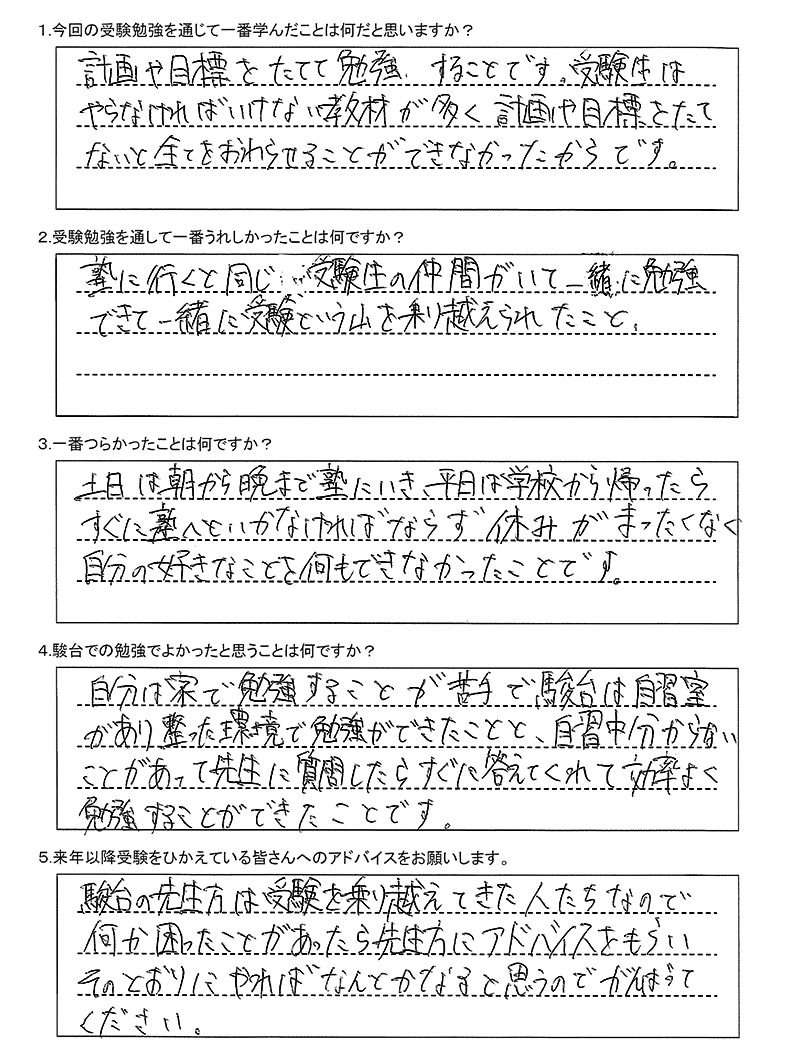 1.今回の受験勉強を通じて一番学んだことは何だと思いますか？
計画や目標をたてて勉強することです。受験生は
やらなければいけない教材が多く計画や目標をたて
ないと全てをおわらせることができなかったからです。
2.受験勉強を通して一番うれしかったことは何ですか？
塾に行くと同じ受験生の仲間がいて一緒に勉強
できて一緒に受験という山を乗り越えられたこと、
3.一番つらかったことは何ですか？
土日は朝から晩まで塾にいき、平日は学校から帰ったら
すぐに塾へといかなければならず休みがまったくなく
自分の好きなことを何もできなかったことです。
4.駿台での勉強でよかったと思うことは何ですか？
自分は家で勉強することが苦手で駿台は自習室
があり整った環境で勉強ができたことと、自習中分からない
ことがあって先生に質問したらすぐに答えてくれて効率よく
勉強することができたことです。
5.来年以降受験をひかえている皆さんへのアドバイスをお願いします。
駿台の先生方は受験を乗り越えてきた人たちなので
何か困ったことがあったら先生方にアドバイスをもらい
そのとおりにやればなんとかなると思うのでがんばって
ください。